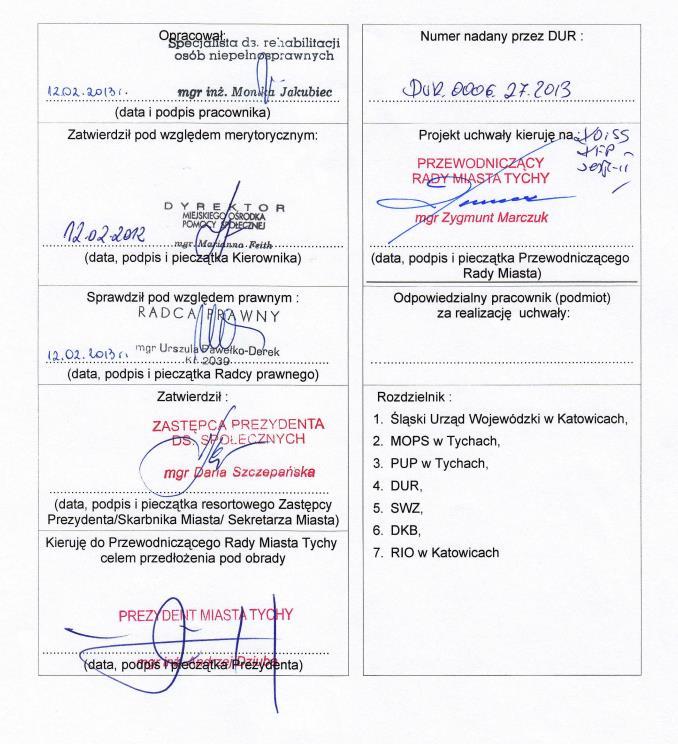 Opracował:
Specjalista ds. rehabilitacji
osób niepełnosprawnych
12.02.2013 r. mgr inż. Monika Jakubiec
(data i podpis pracownika)
Zatwierdził pod względem merytorycznym:
DYREKTOR
MIEJSKIEGO OŚRODKA
POMOCY SPOŁECZNEJ
12.02.2012 mgr Marianna Feith
(data, podpis i pieczątka Kierownika)
Sprawdził pod względem prawnym :
RADCA PRAWNY
mgr Urszula Pawełko-Derek
12.02.2013 r. Kt. 2039
(data, podpis i pieczątka Radcy prawnego)
Zatwierdził :
ZASTĘPCA PREZYDENTA
DS. SPOŁECZNYCH
mgr Daria Szczepańska
(data, podpis i pieczątka resortowego Zastępcy
Prezydenta/Skarbnika Miasta/ Sekretarza Miasta)
Kieruję do Przewodniczącego Rady Miasta Tychy
celem przedłożenia pod obrady
PREZYDENT MIASTA TYCHY
mgr inż. Andrzej Dziuba
(data, podpis i pieczątka Prezydenta)
Numer nadany przez DUR :
DUR.0006.27.2013
Projekt uchwały kieruję na :
PRZEWODNICZĄCY
RADY MIASTA TYCHY
mgr Zygmunt Marczuk
(data, podpis i pieczątka Przewodniczącego
Rady Miasta)
Odpowiedzialny pracownik (podmiot)
za realizację uchwały:
Rozdzielnik :
1. Śląski Urząd Wojewódzki w Katowicach,
2. MOPS w Tychach,
3. PUP w Tychach,
4. DUR,
5. SWZ,
6. DKB,
7. RIO w Katowicach